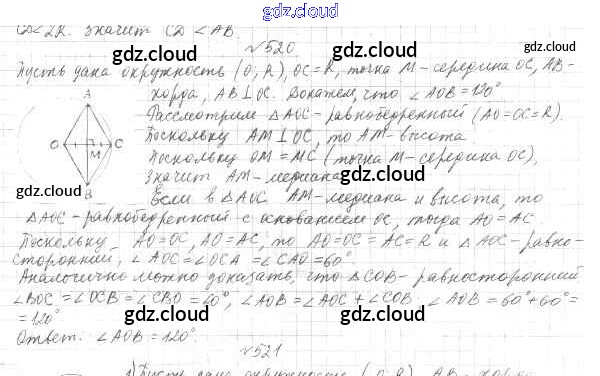 gdz.cloud
CD<2R. значит CD < AB.
gdz.cloud gdz.cloud
№520
Пусть дана окружность (O; R), OC=R, точка M-середина OC, AB-
хорда, AB⊥OC. Докажем, что ∠AOB=120°
Рассмотрим △AOC-равнобедренный (AO=OC=R).
Поскольку AM⊥OC, то AM-высота.
gdz.cloud gdz.cloud
Поскольку OM=MC (точка M-середина OC),
A
O
C
M
B
значит AM-медиана
gdz.cloud gdz.cloud
Если в △AOC AM-медиана и высота, то
△AOC-равнобедренный с основанием OC, тогда AO=AC
Поскольку AO=OC, AO=AC, то AO=OC=AC=R и △AOC-равно-
gdz.cloud gdz.cloud
сторонний, ∠AOC=∠OCA=∠CAO=60°.
Аналогично можно доказать, что △COB-равносторонний
∠BOC=∠OCB=∠CBO=60°, ∠AOB=∠AOC+∠COB. ∠AOB=60°+60°=
=120°
gdz.cloud gdz.cloud
Ответ: ∠AOB=120°.
№521